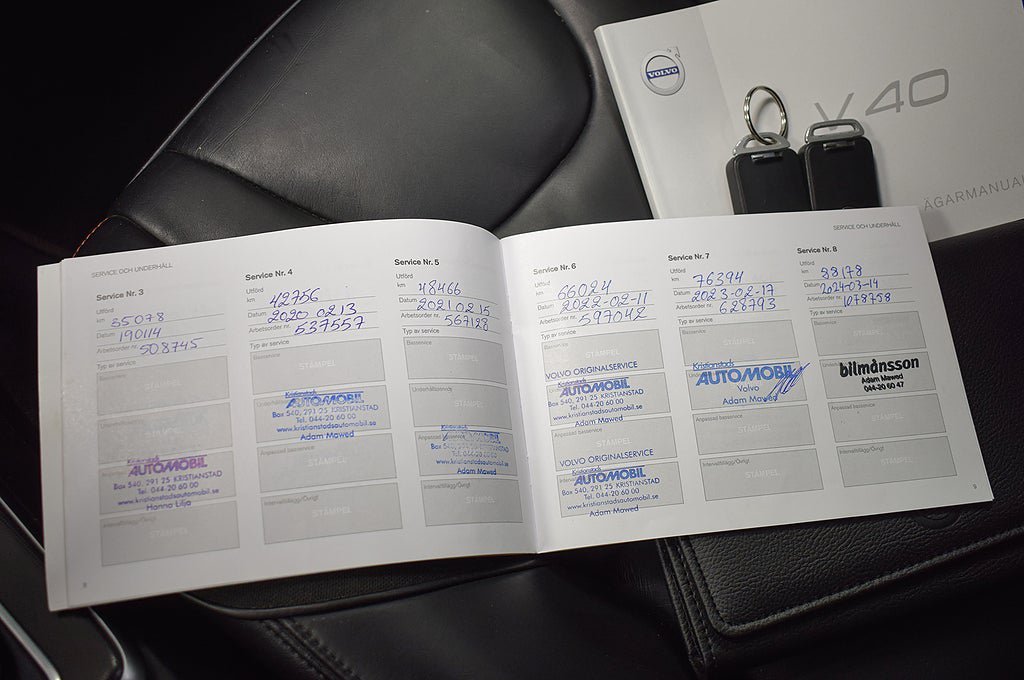 VOLVO
V40
ÄGARMANUAL
SERVICE OCH UNDERHÅLL
Service Nr. 3
Utförd
km 35078
Datum 190114
Arbetsorder nr. 508745
Typ av service
STÄMPEL
Kristianstads
AUTOMOBIL
Box 540, 291 25 KRISTIANSTAD
Tel. 044-20 60 00
www.kristianstadsautomobil.se
Hanna Lilja
Intervalltillägg/Övrigt
STÄMPEL
8
Service Nr. 4
Utförd
km 42756
Datum 2020 02 13
Arbetsorder nr. 537557
Typ av service
Basservice
STÄMPEL
Kristianstads
AUTOMOBIL
Box 540, 291 25 KRISTIANSTAD
Tel. 044-20 60 00
www.kristianstadsautomobil.se
Adam Mawed
Anpassad basservice
STÄMPEL
Intervalltillägg/Övrigt
STÄMPEL
Service Nr. 5
Utförd
km 48466
Datum 2021 02 15
Arbetsorder nr. 567128
Typ av service
Basservice
STÄMPEL
Underhållsservice
STÄMPEL
Anpassad basservice
AUTOMOBIL
Box 540, 291 25 KRISTIANSTAD
Tel. 044-20 60 00
www.kristianstadsautomobil.se
Adam Mawed
Intervalltillägg/Övrigt
STÄMPEL
SERVICE OCH UNDERHÅLL
Service Nr. 6
Utförd
km 66024
Datum 2022-02-11
Arbetsorder nr. 597042
Typ av service
Basservice
STÄMPEL
VOLVO ORIGINALSERVICE
Kristianstads
AUTOMOBIL
Box 540, 291 25 KRISTIANSTAD
Tel. 044-20 60 00
www.kristianstadsautomobil.se
Adam Mawed
Anpassad basservice
STÄMPEL
VOLVO ORIGINALSERVICE
Kristianstads
AUTOMOBIL
Box 540, 291 25 KRISTIANSTAD
Tel. 044-20 60 00
www.kristianstadsautomobil.se
Adam Mawed
Service Nr. 7
Utförd
km 76394
Datum 2023-02-17
Arbetsorder nr. 628793
Typ av service
Basservice
STÄMPEL
Kristianstads
AUTOMOBIL
Volvo
Adam Mawed
Anpassad basservice
STÄMPEL
Intervalltillägg/Övrigt
STÄMPEL
Service Nr. 8
Utförd
km 88178
Datum 2024-03-14
Arbetsorder nr. 1078758
Typ av service
Basservice
STÄMPEL
bilmånsson
Adam Mawed
044-20 60 47
Anpassad basservice
STÄMPEL
Intervalltillägg/Övrigt
STÄMPEL
9